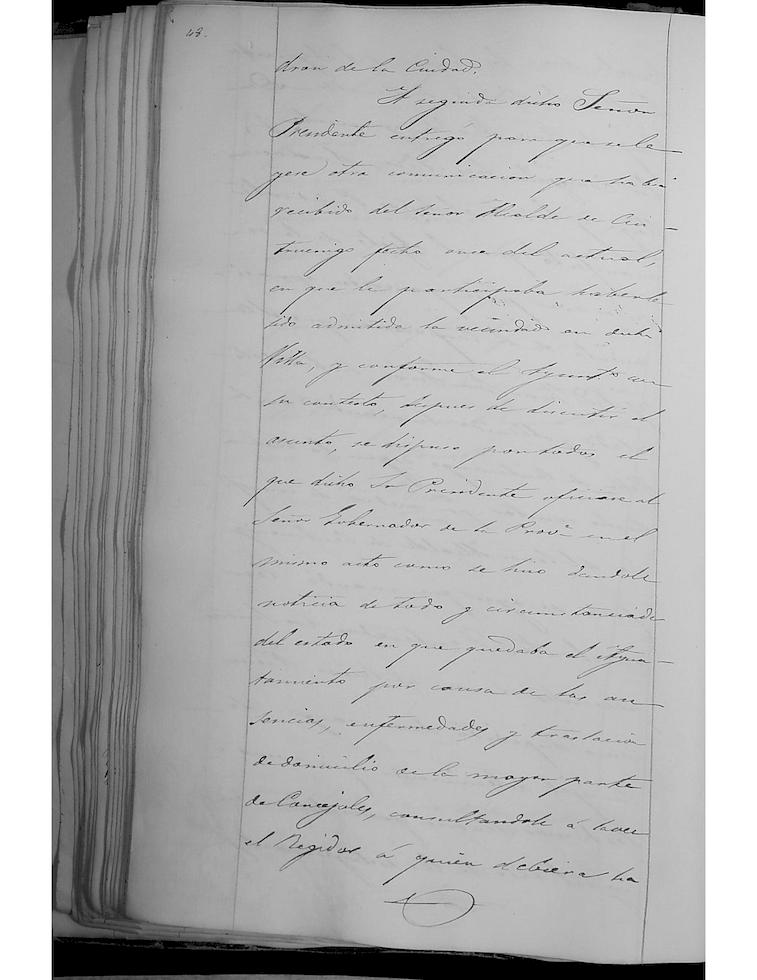 48.
dron de la Ciudad.
A seguida dicho Señor
Presidente entregó para que se le
yese otra comunicacion que habia
recibido del Señor Alcalde de Cin-
truenigo fecha once del actual,
en que le participaba haberle
sido admitida la vecindad en dicha
Villa, y conforme el Ayunt.º con
su contesto, despues de discutir el
asunto, se dispuso por todos el
que dicho Sr Presidente oficiase al
Señor Gobernador de la Prov.ª en el
mismo acto como se hizo dandole
noticia de todo y circunstanciada
del estado en que quedaba el Ayun-
tamiento por causa de las au-
sencias, enfermedades y traslacion
de domicilio de la mayor parte
de Concejales, consultandole á
el Regidor á quien debiera ha